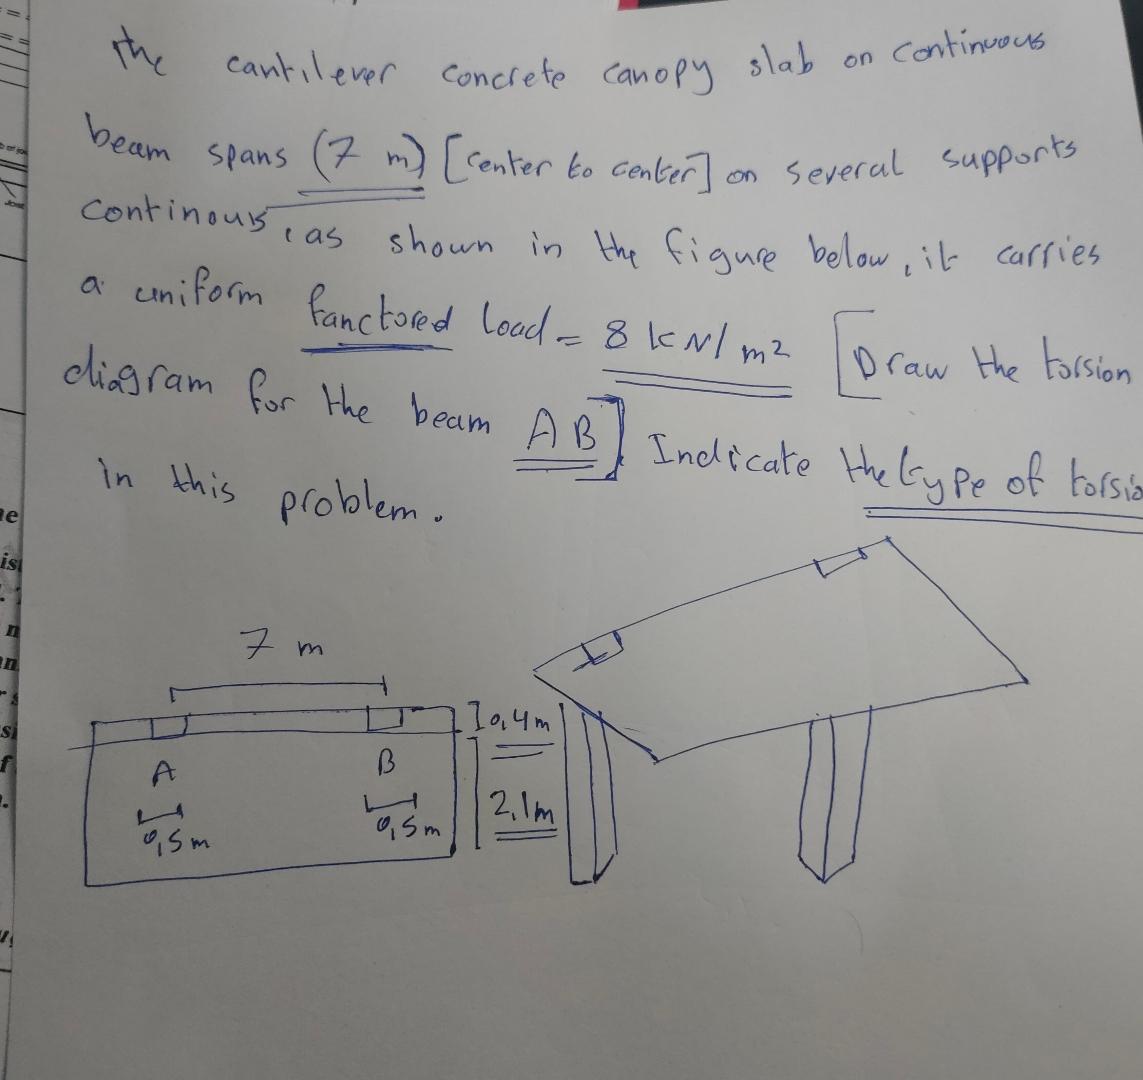 the cantilever concrete canopy slab on continuous
beam spans (7 m) [center to center] on several supports
continous, as shown in the figure below, it carries
a uniform fanctored load = 8 kN/m² [Draw the torsion
diagram for the beam AB] Indicate the type of torsio
in this problem.
7 m
0,4m
A
B
2,1m
0,5m
0,5m